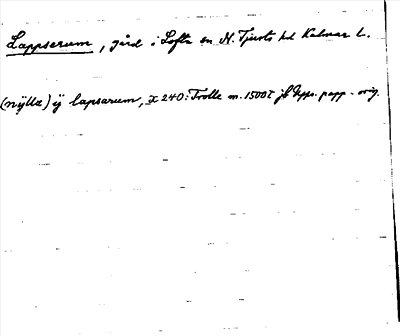 Lappserum, gård i Lofta sn N. Tjusts hd Kalmar l.
(nytta) ÿ lapsarum, X 240: Trolle m. 1500t jb Upps. papp. orig.